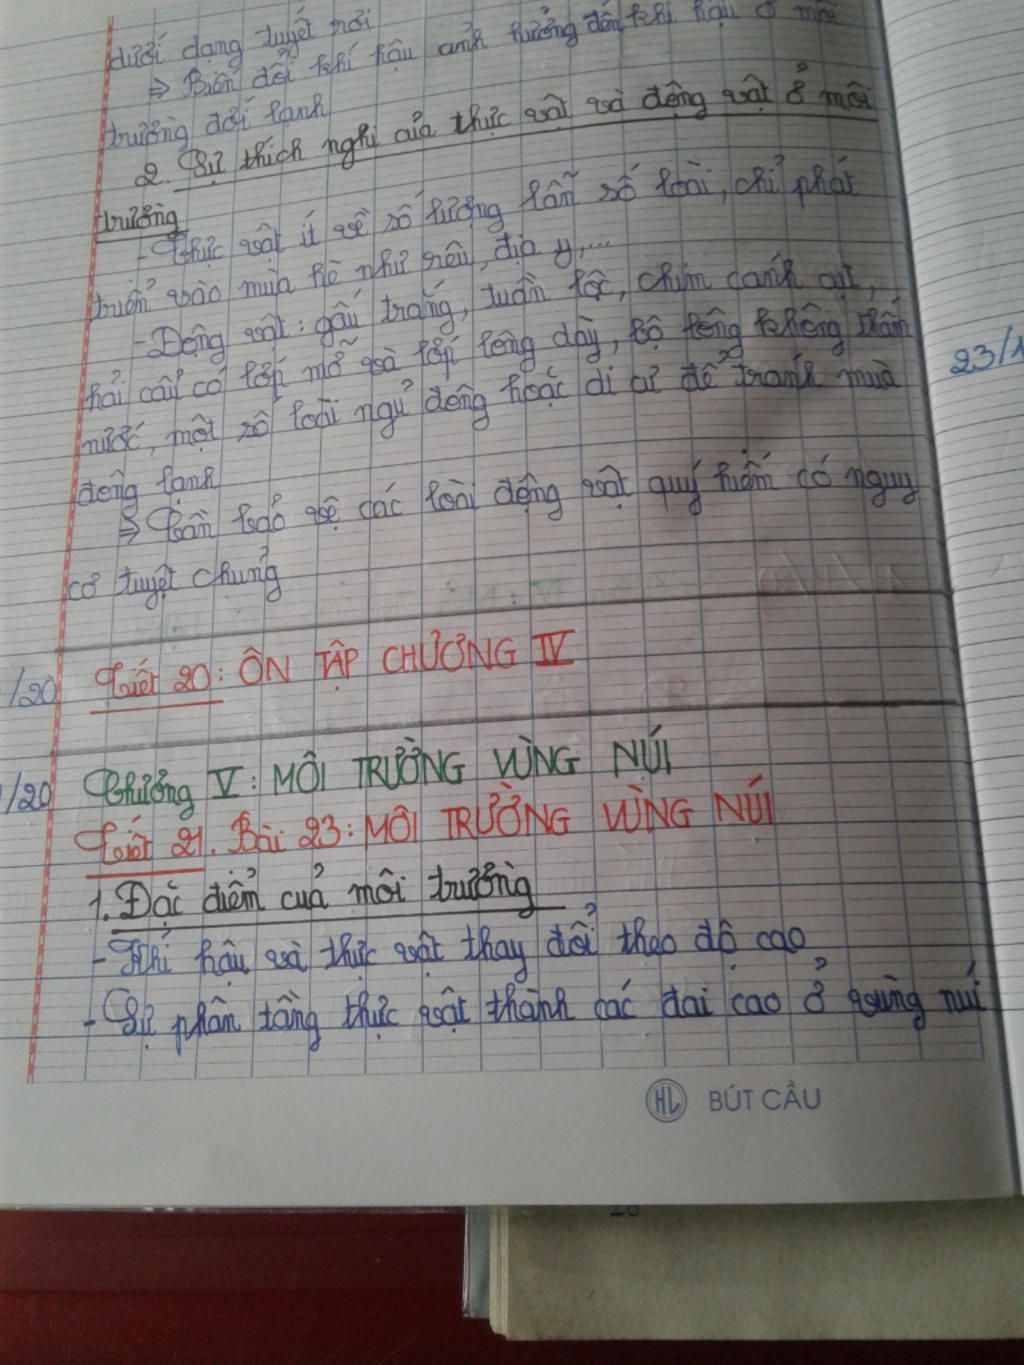 dưới dạng tuyết rơi
⇒ Biến đổi khí hậu ảnh hưởng đến khí hậu ở môi
trường đới lạnh
2. Sự thích nghi của thực vật và động vật ở môi
trường
- Thực vật ít về số lượng lẫn số loài, chỉ phát
triển vào mùa hè như rêu, địa y,...
- Động vật: gấu trắng, tuần lộc, chim cánh cụt,
hải cẩu có lớp mỡ và lớp lông dày, bộ lông không thấm
nước, một số loài ngủ đông hoặc di cư để tránh mùa
đông lạnh
⇒ Cần bảo vệ các loài động vật quý hiếm có nguy
cơ tuyệt chủng
/20 Tiết 20: ÔN TẬP CHƯƠNG IV
/20 Chương V: MÔI TRƯỜNG VÙNG NÚI
Tiết 21. Bài 23: MÔI TRƯỜNG VÙNG NÚI
1. Đặc điểm của môi trường
- Khí hậu và thực vật thay đổi theo độ cao
- Sự phân tầng thực vật thành các đai cao ở vùng núi
HL BÚT CẦU
23/1